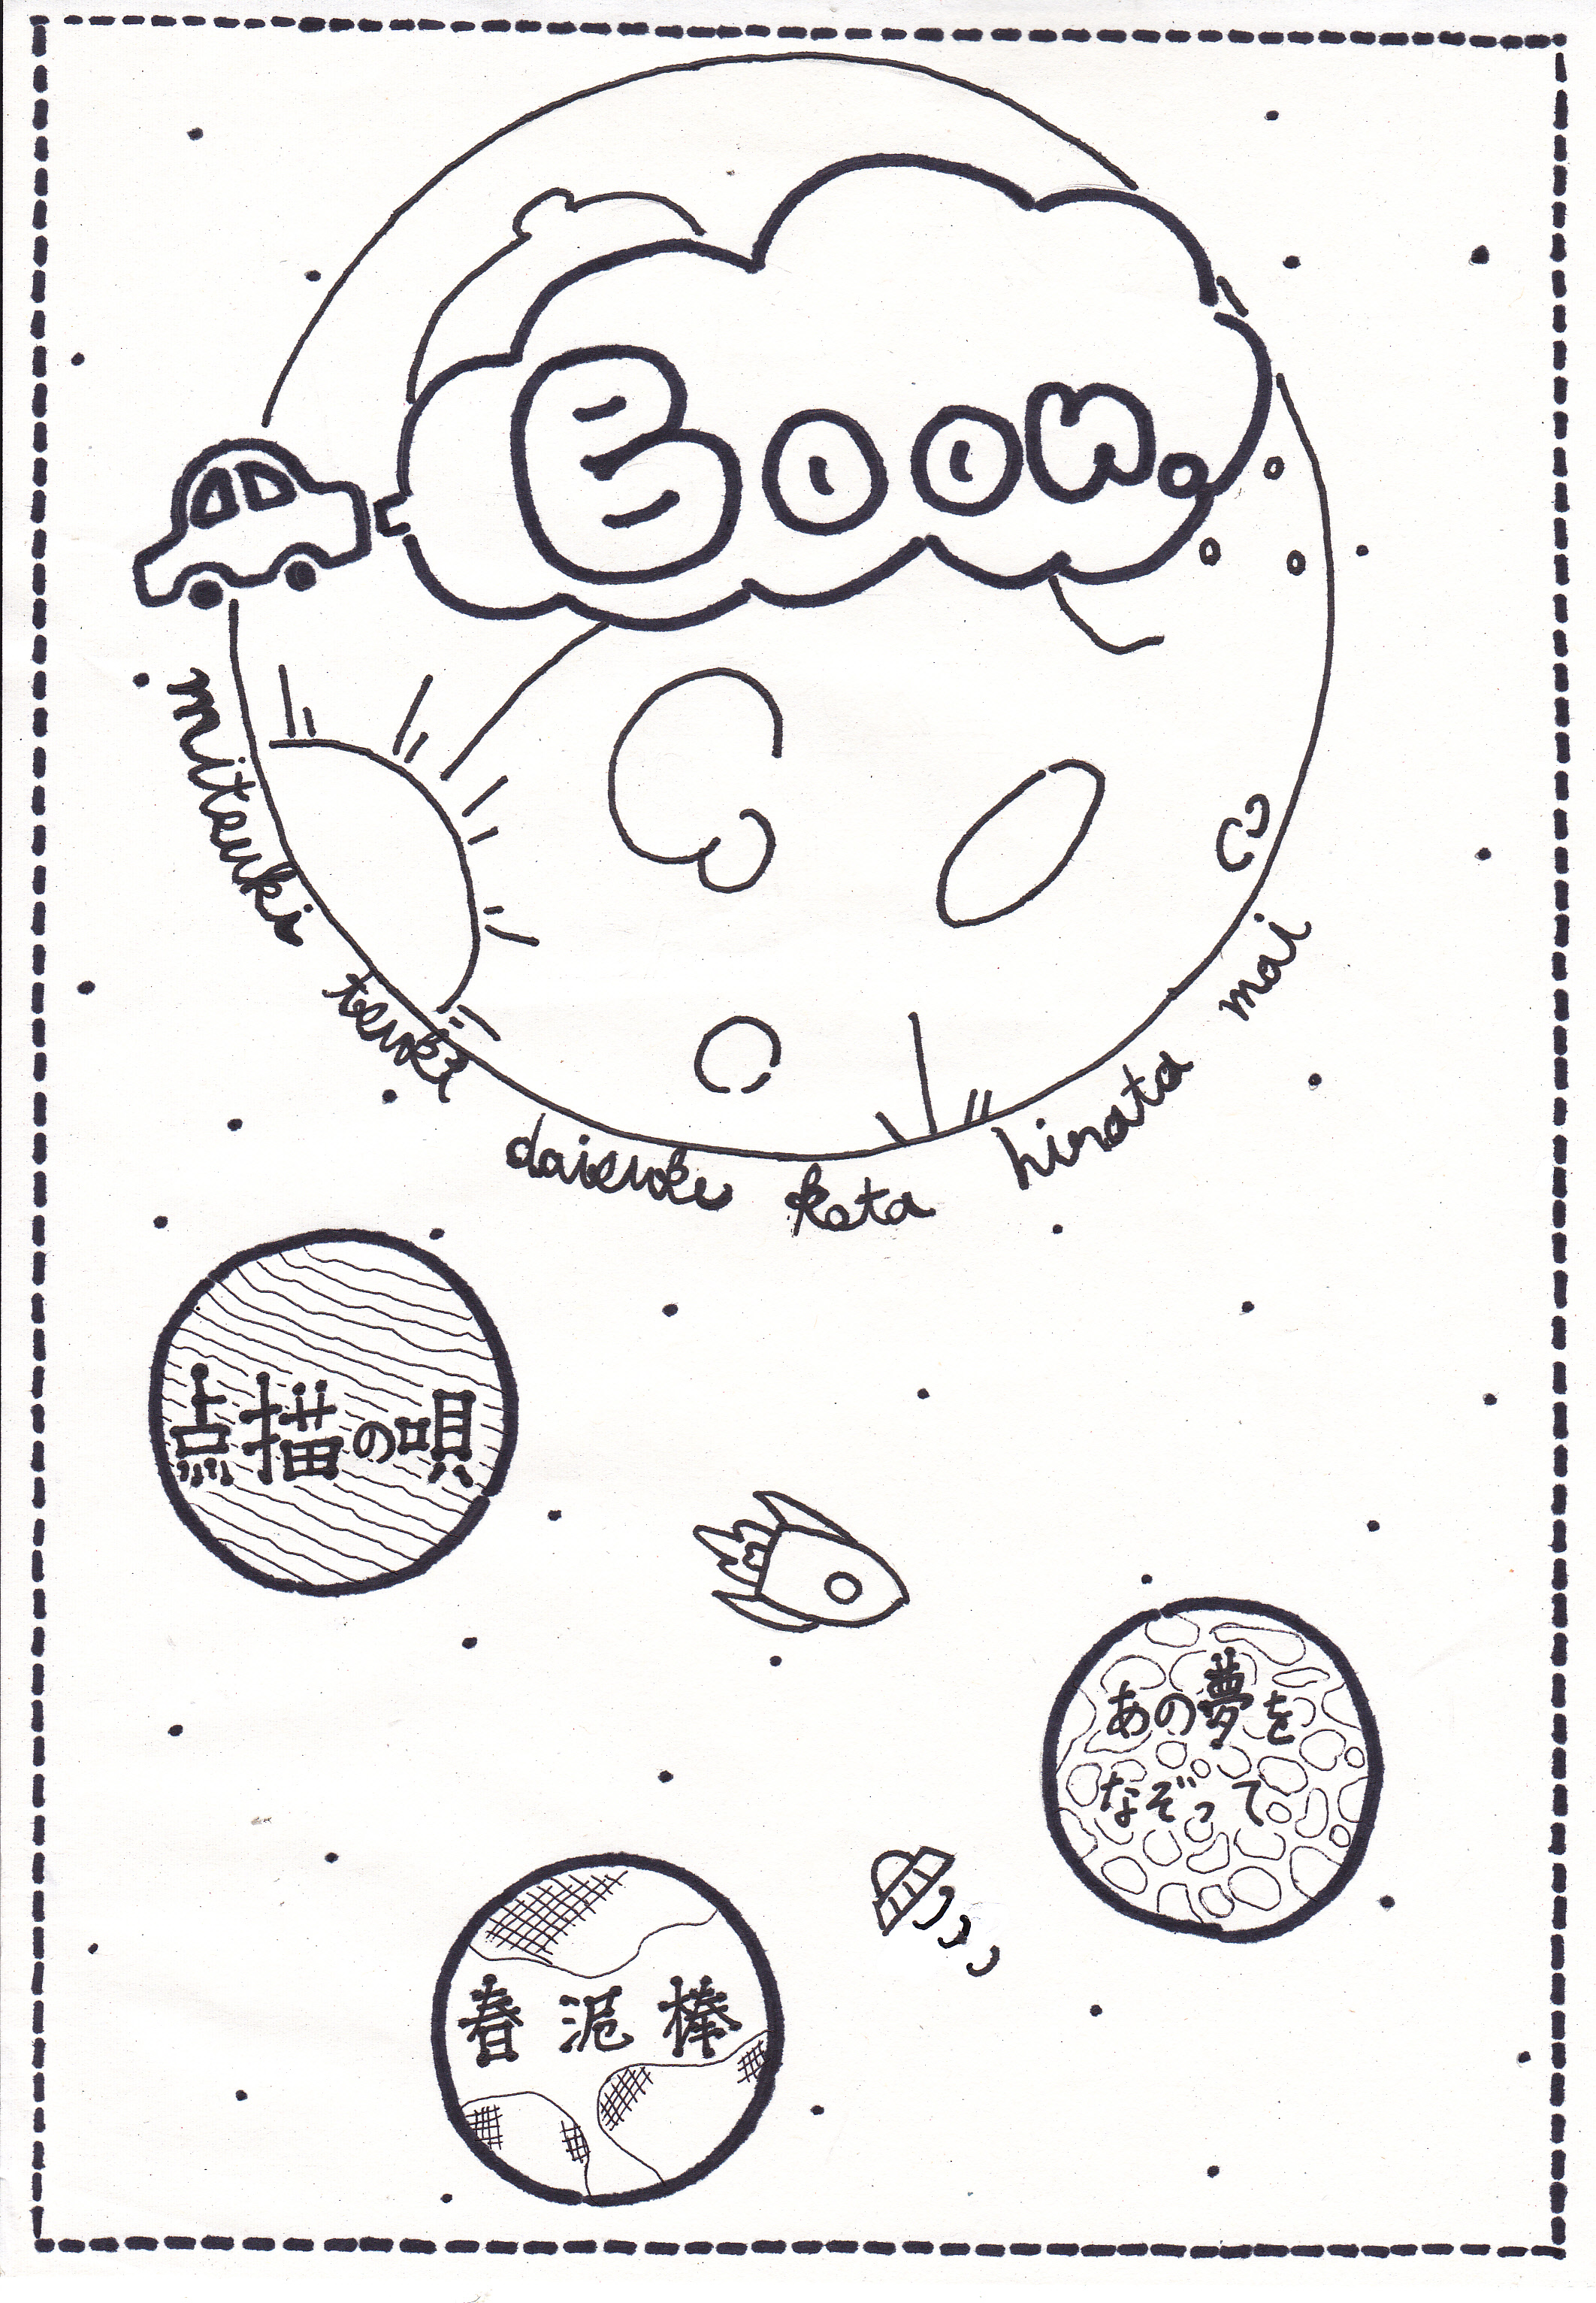 Boon。
mitsuki
tsuki
daisuke
kota
hinata
mai
点描の唄
あの夢を
なぞって
春泥棒